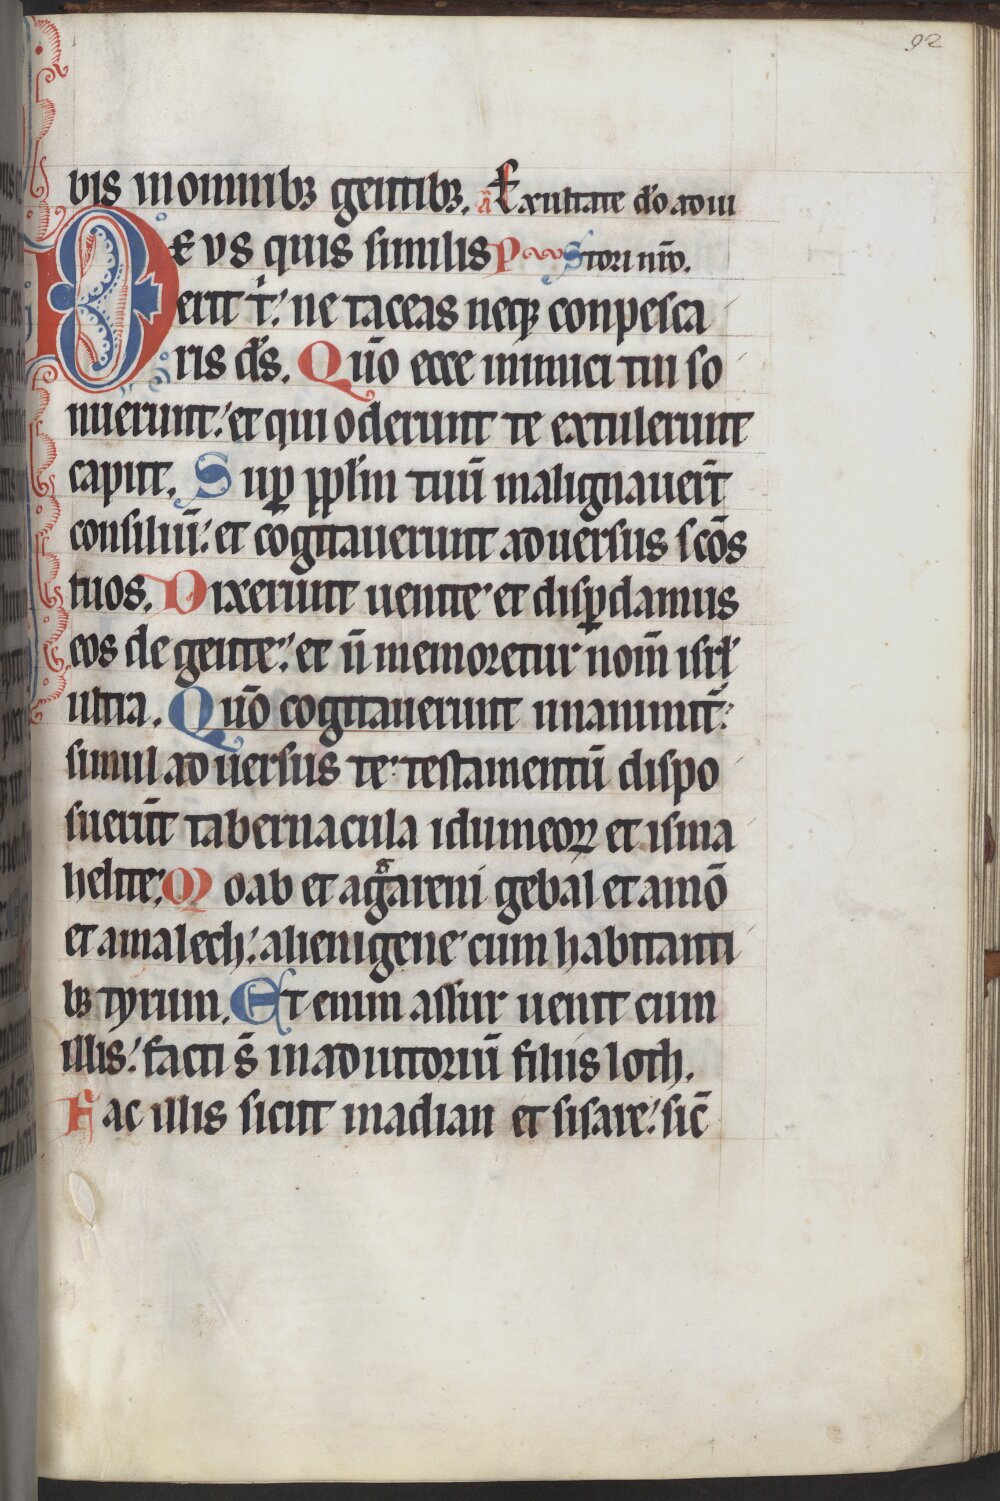 92
bis in omnibꝫ gentibꝫ. a̅ Exultate do̅ adiu
DEVS quis similis Ps̅ tori nr̅o.
erit t̅: ne taceas neqꝫ conpesca
ris ds̅. Qūo ecce inimici tui so
nuerunt: et qui oderunt te extulerunt
caput. Suꝑ pplm̅ tuū malignauer̅t
consiliū: et cogitauerunt aduersus sco̅s
tuos. Dixerunt uenite et disꝑdamus
eos de gente: et n̅ memoretur nom̅ isrl̅
ultra. Qūo cogitauerunt unanimit̅:
simul aduersus te testamentū dispo
suerūt tabernacula idumeoꝝ et isma
helite: Moab et agareni gebal et amō
et amalech: alienigene cum habitanti
bꝫ tyrum. Etenim assur uenit cum
illis: facti s̅ in adiutoriū filiis loth.
Fac illis sicut madian et sisare: sic̅